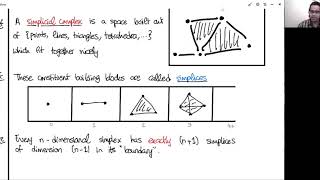 A simplicial complex is a space built out
of {points, lines, triangles, tetrahedra, ...}
which fit together nicely
These constituent building blocks are called simplices
0
1
2
3
Every n-dimensional simplex has exactly (n+1) simplices
of dimension (n-1) in its "boundary".